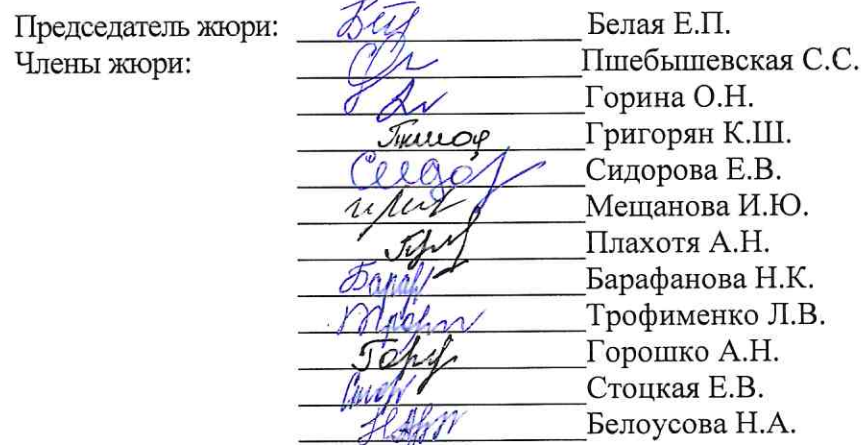 Председатель жюри: Белая Е.П.
Члены жюри: Пшебышевская С.С.
Горина О.Н.
Григорян К.Ш.
Сидорова Е.В.
Мещанова И.Ю.
Плахотя А.Н.
Барафанова Н.К.
Трофименко Л.В.
Горошко А.Н.
Стоцкая Е.В.
Белоусова Н.А.